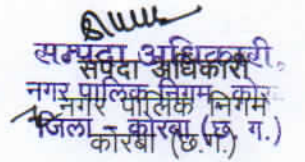 सम्पदा अधिकारी
संपदा अधिकारी
नगर पालिक निगम, कोर
नगर पालिक निगम
जिला - कोरबा (छ. ग.)
कोरबा (छ.ग.)